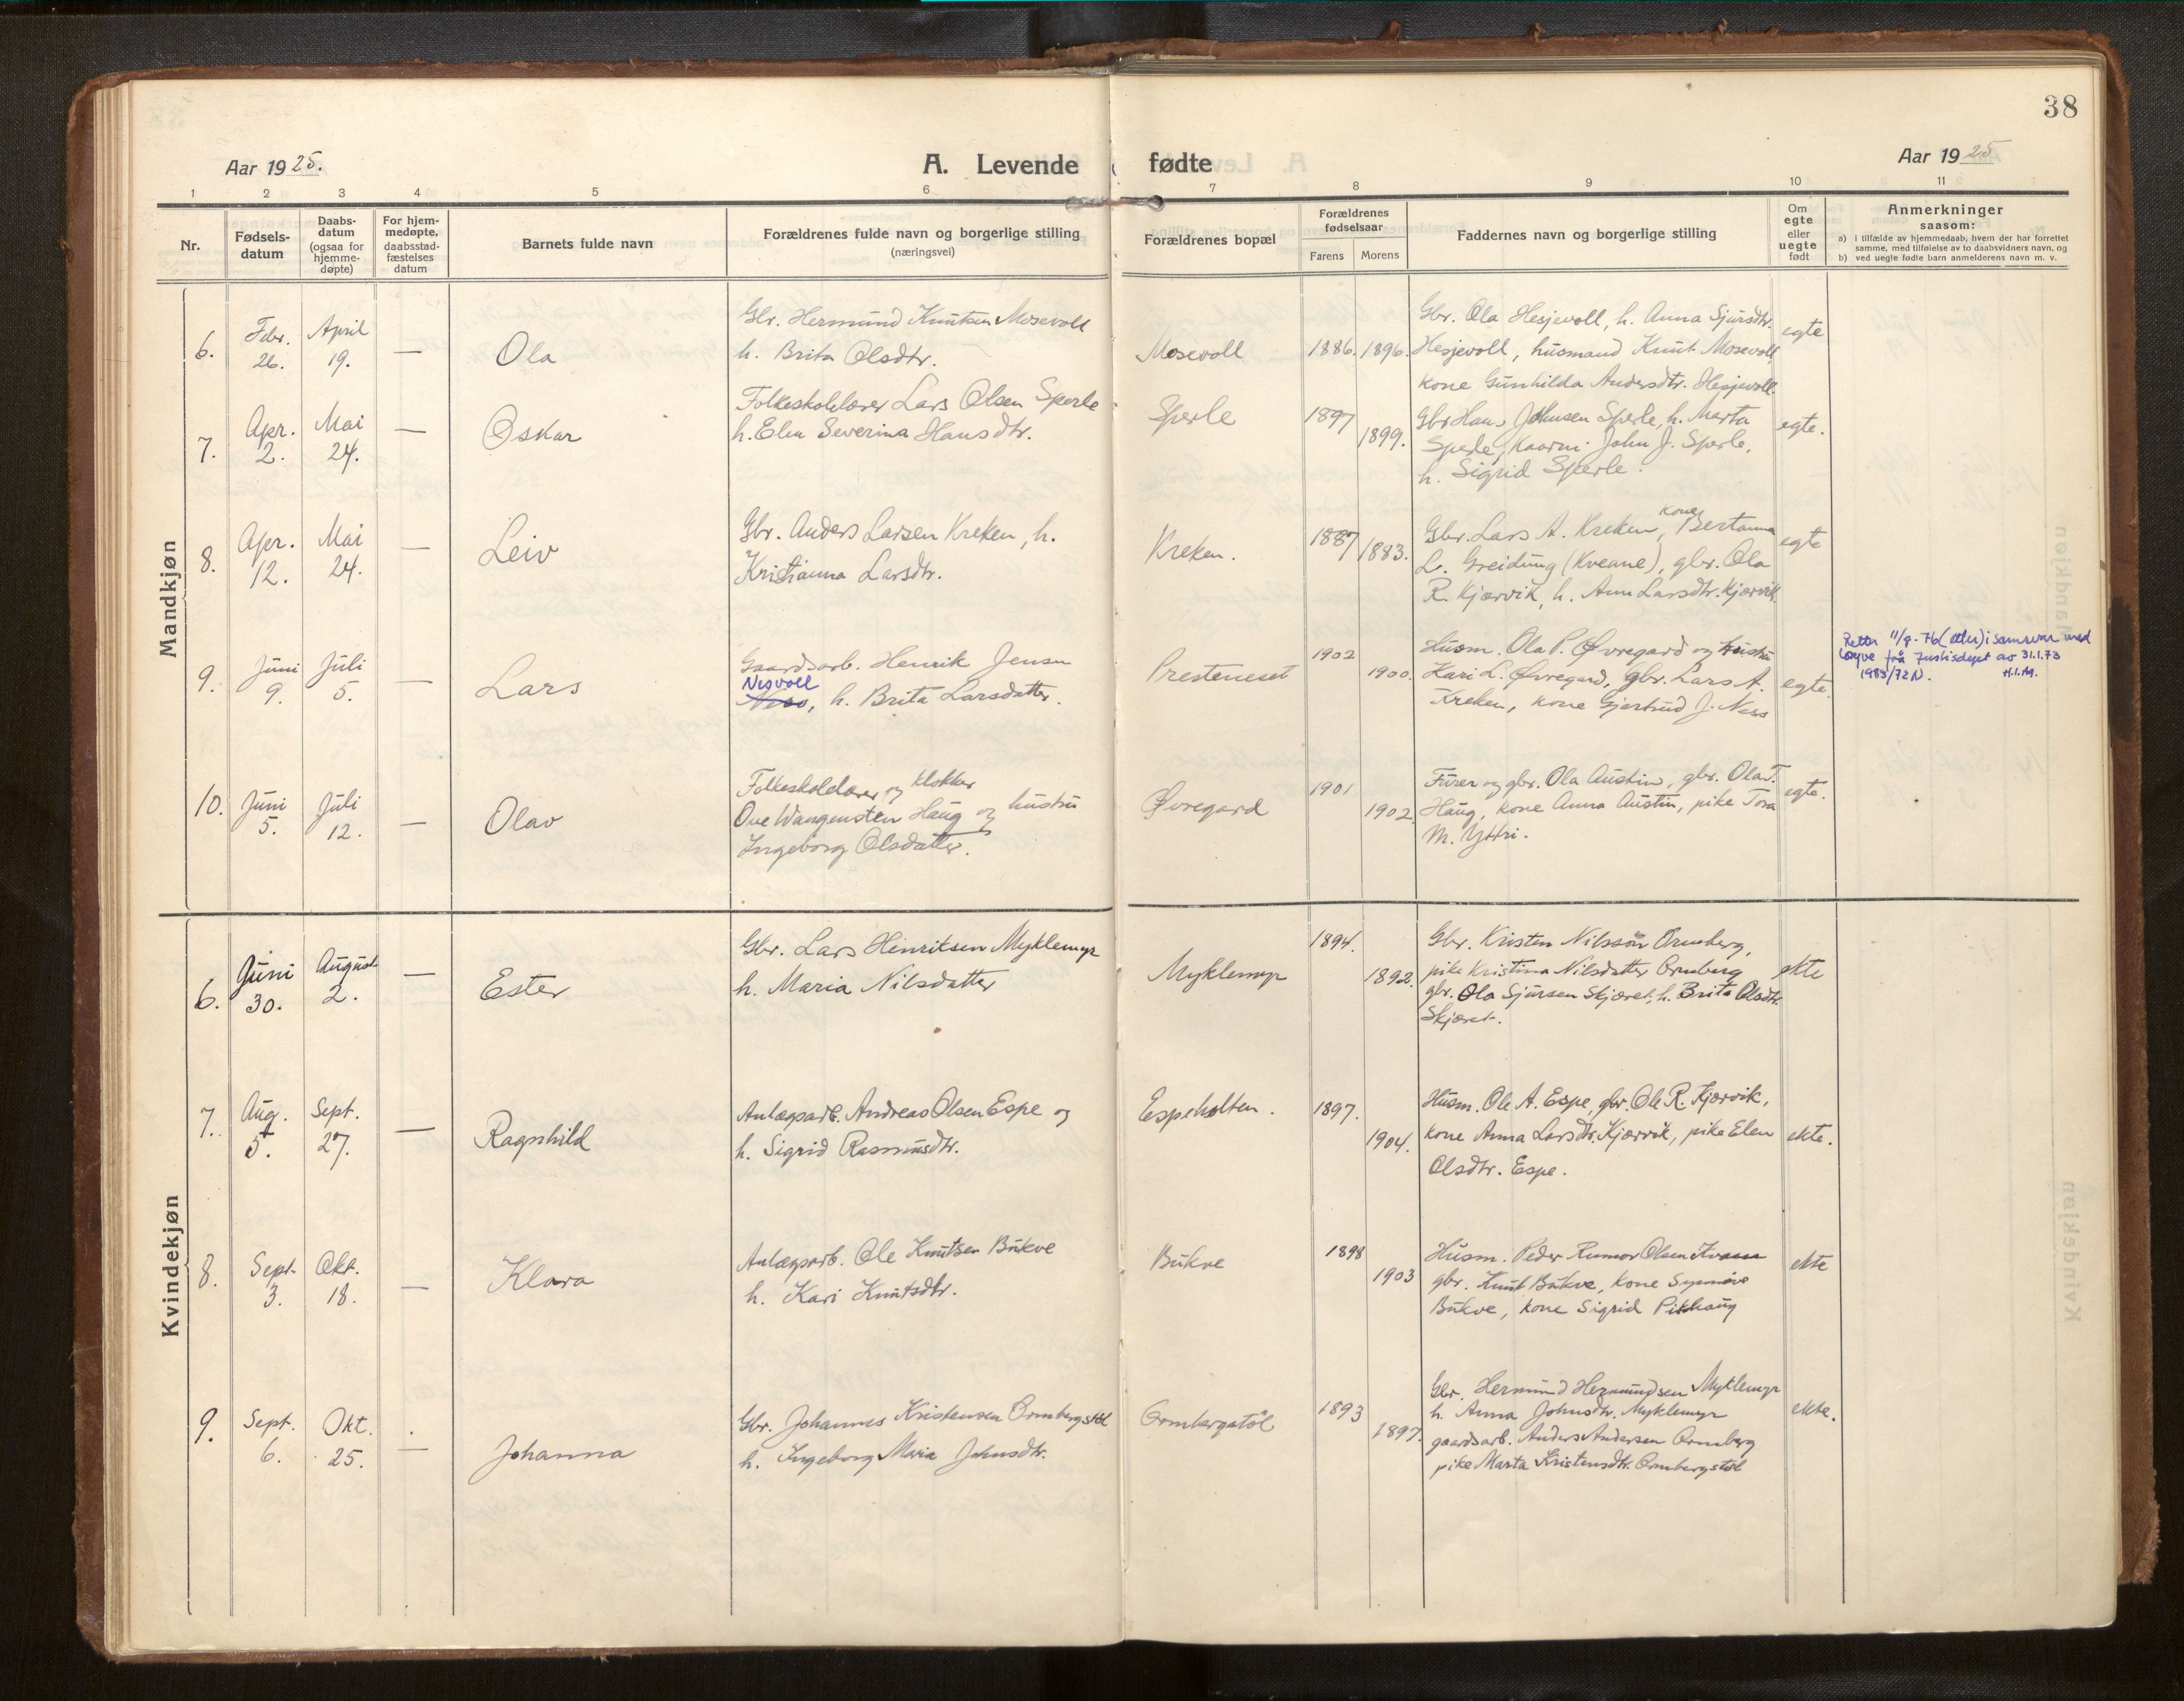 38
Aar 1925.
A. Levende fødte
Aar 1925
1 2 3 4 5 6 7 8 9 10 11
Nr.
Fødsels-
datum
Daabs-
datum
(ogsaa for
hjemme-
døpte)
For hjem-
medøpte,
daabsstad-
fæstelses
datum
Barnets fulde navn
Forældrenes fulde navn og borgerlige stilling
(næringsvei)
Forældrenes bopæl
Forældrenes
fødselsaar
Farens Morens
Faddernes navn og borgerlige stilling
Om
egte
eller
uegte
født
Anmerkninger
saasom:
a) i tilfælde av hjemmedaab, hvem der har forrettet
samme, med tilføielse av to daabsvidners navn, og
b) ved uegte fødte barn anmelderens navn m. v.
Mandkjøn
6.
Febr.
26.
April
19.
—
Ola
Gbr. Hermund Knutsen Mosevoll
h. Brita Olsdtr.
Mosevoll
1886. 1896.
Gbr. Ola Hesjevoll, h. Anna Sjursdtr.
Hesjevoll, husmand Knut Mosevoll,
kone Gunhilda Andersdtr. Hesjevoll.
egte
7.
Apr.
2.
Mai
24.
—
Oskar
Folkeskolelærer Lars Olsen Sperle
h. Elen Severina Hansdtr.
Sperle
1897
1899.
Gbr Hans Johnsen Sperle, h. Marta
Sperle, kaarm. John J. Sperle,
h. Sigrid Sperle.
egte.
8.
Apr.
12.
Mai
24.
—
Leiv
Gbr. Anders Larsen Kreken, h.
Kristianna Larsdtr.
Kreken.
1887
1883.
Gbr. Lars A. Kreken, kone Bertanna
L. Greidung (Kveane), gbr. Ola
R. Kjørvik, h. Ann Larsdtr. Kjørvik.
egte
9.
Juni
9.
Juli
5.
—
Lars
Gaardsarb. Henrik Jensen
Nesvoll
Ness, h. Brita Larsdatter.
Presteneset
1902
1900.
Husm. Ola P. Øvregard og hustru
Kari L. Øvregard, gbr. Lars A.
Kreken, kone Gjertrud J. Ness
egte.
Retta 11/8-76 (etter) i samsvar med
løyve frå Justisdept av 31.1.73
1983/72 N. H.I.M.
10.
Juni
5.
Juli
12.
—
Olav
Folkeskolelærer og klokker
Ove Wangensten Haug og hustru
Ingeborg Olsdatter.
Øvregard
1901
1902.
Furer og gbr. Ola Austin, gbr. Ola T.
Haug, kone Anna Austin, pike Tora
M. Yttri.
egte.
Kvindekjøn
6.
Juni
30.
August
2.
—
Ester
Gbr. Lars Henriksen Myklemyr
h. Maria Nilsdatter
Myklemyr
1894.
1892.
Gbr. Kristen Nilsson Ormberg,
pike Kristina Nilsdatter Ormberg
gbr. Ola Sjursen Skjæret, h. Brita Olsdtr.
Skjæret.
ekte
7.
Aug.
5.
Sept.
27.
—
Ragnhild
Anlægsarb. Andreas Olsen Espe og
h. Sigrid Rasmusdtr.
Espeholten.
1897.
1904.
Husm. Ole A. Espe, gbr. Ole R. Kjørvik,
kone Anna Larsdtr. Kjørvik, pike Elen
Olsdtr. Espe.
ekte.
8.
Sept.
3.
Okt.
18.
—
Klara
Anlægsarb. Ole Knutsen Bukve
h. Kari Knutsdtr.
Bukve
1898
1903
Husm. Peder Olsen
gbr. Knut Bukve, kone Synnøve
Bukve, kone Sigrid Pikhaug
ekte
9.
Sept.
6.
Okt.
25.
—
Johanna
Gbr. Johannes Kristensen Ormbergstøl
h. Ingeborg Maria Johnsdtr.
Ormbergstøl
1893
1897.
Gbr. Hermund Hermundsen Myklemyr
h. Anna Johnsdtr. Myklemyr
gaardsarb. Anders Andersen Ormberg
pike Marta Kristensdtr. Ormbergstøl
ekte.